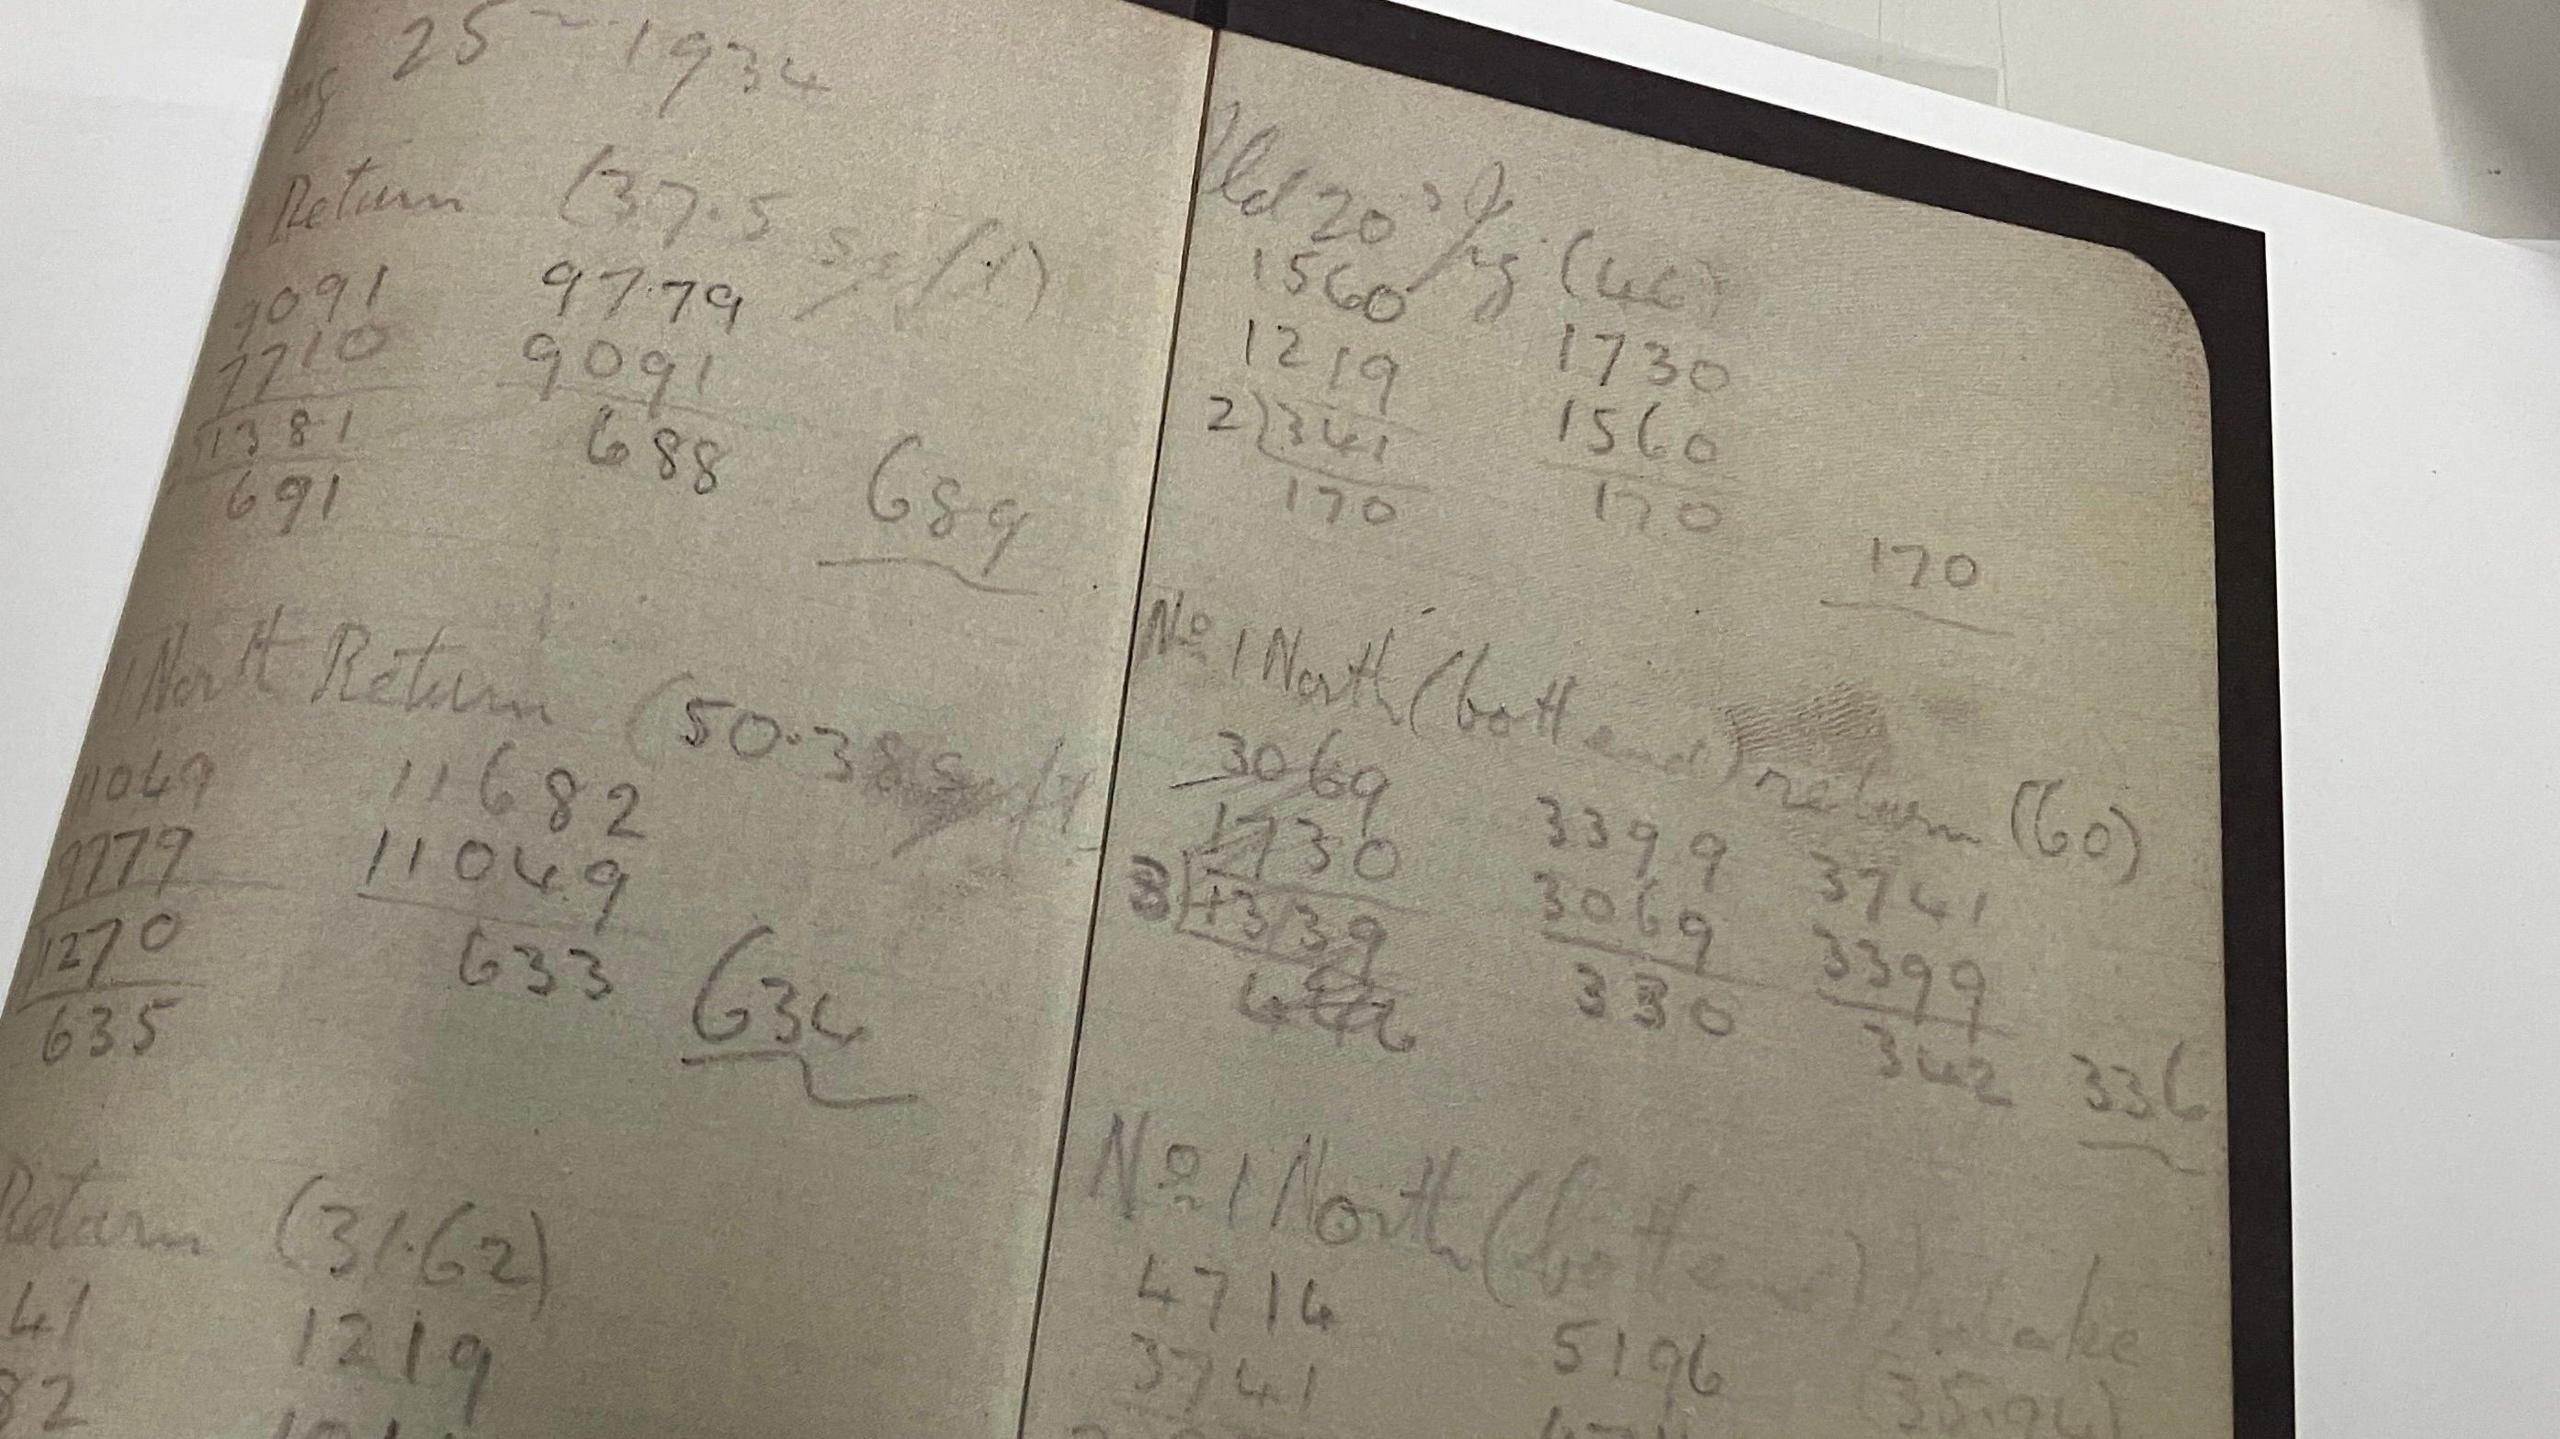 25 ~ 1934
Return (37.5
9091 9779
7710 9091
1381 688
691 689
1 North Return (50.38
11049 11682
9779 11049
1270 633
635 634
Return (31.62)
41 1219
82
Old 20's Jig (46)
1560 1730
1219 1560
2)341 170
170 170
No 1 North (bott end) return (60)
3069 3399 3741
1730 3069 3399
3 1339 330 342
336
No 1 North (bott end) intake
4714 5196 (35.94)
3741